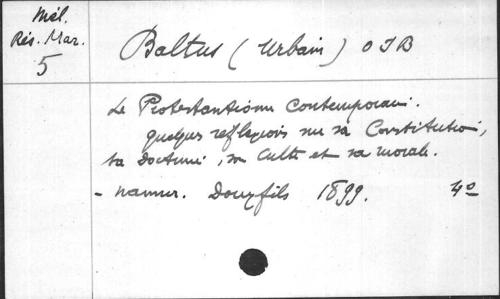 Mél.
Rés. Mar.
5
Baltus (Urbain) OSB
Le Protestantisme Contemporain.
quelques reflexions sur sa Constitution,
sa doctrine, son culte et sa morale.
- Namur. Douxfils 1899. 4º